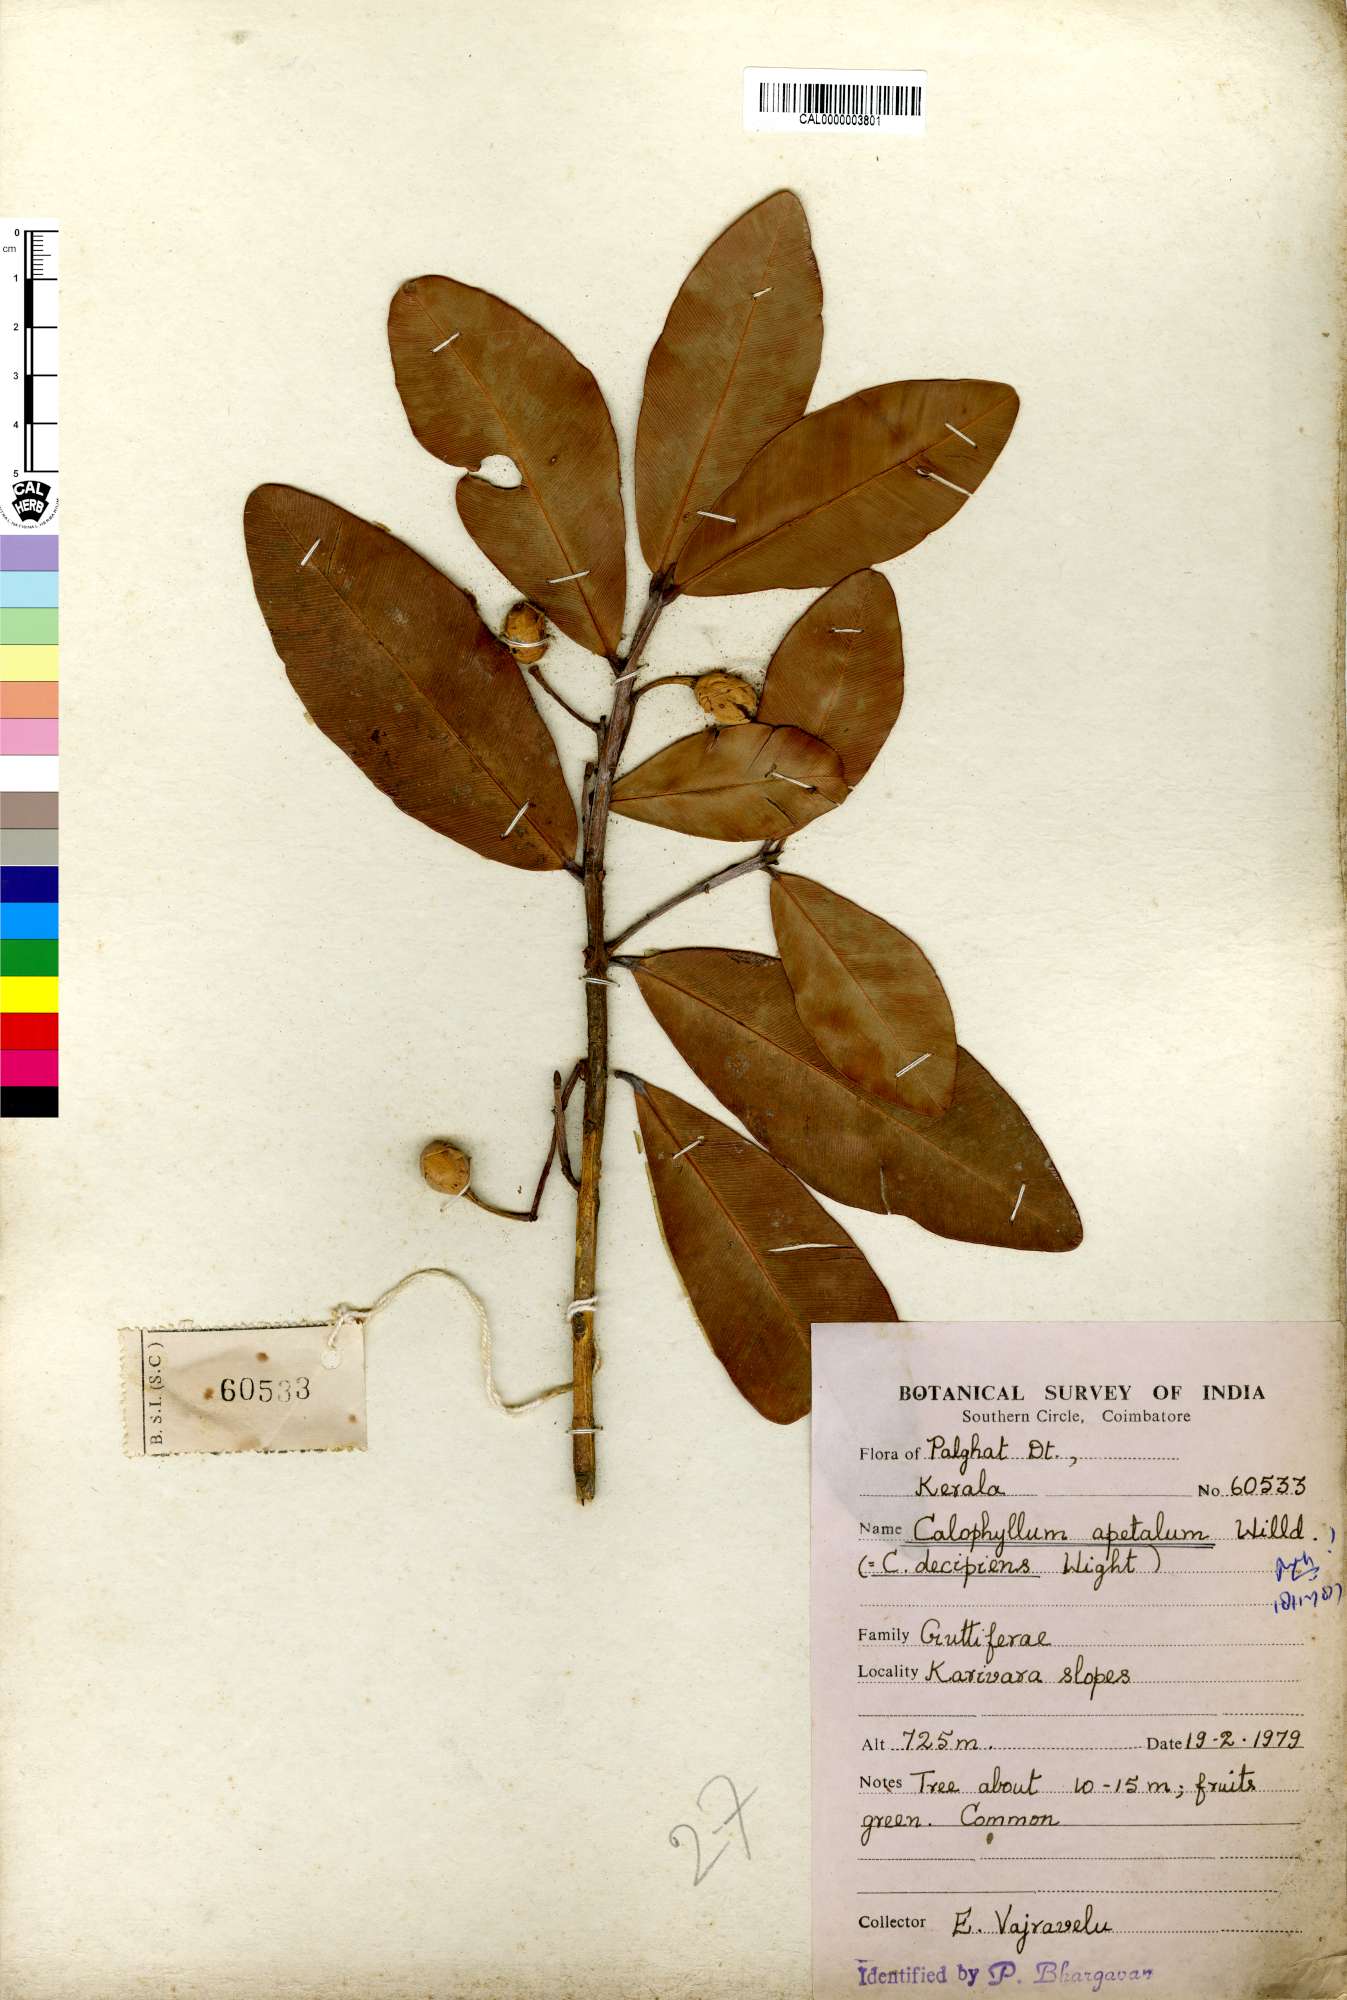 CAL0000003801
0
cm
1
2
3
4
5
CAL
HERB
B. S. I. (S.C)
60533
BOTANICAL SURVEY OF INDIA
Southern Circle, Coimbatore
Flora of Palghat Dt.,
Kerala No 60533
Name Calophyllum apetalum Willd. !
(= C. decipiens Wight)
Family Guttiferae
Locality Karivara slopes
Alt 725m. Date 19-2-1979
Notes Tree about 10-15 m; fruits
green. Common
Collector E. Vajravelu
Identified by P. Bhargavan
27